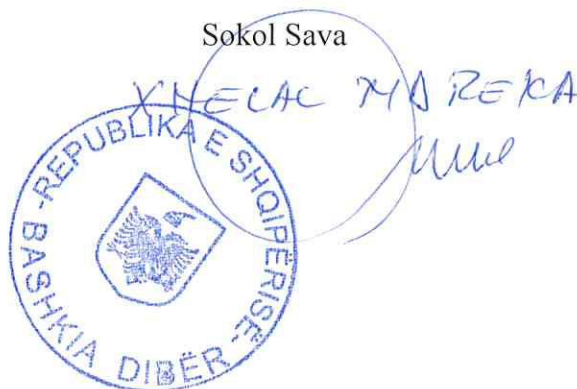 Sokol Sava
XHELAL MAREKA
-REPUBLIKA E SHQIPËRISË-
BASHKIA DIBËR